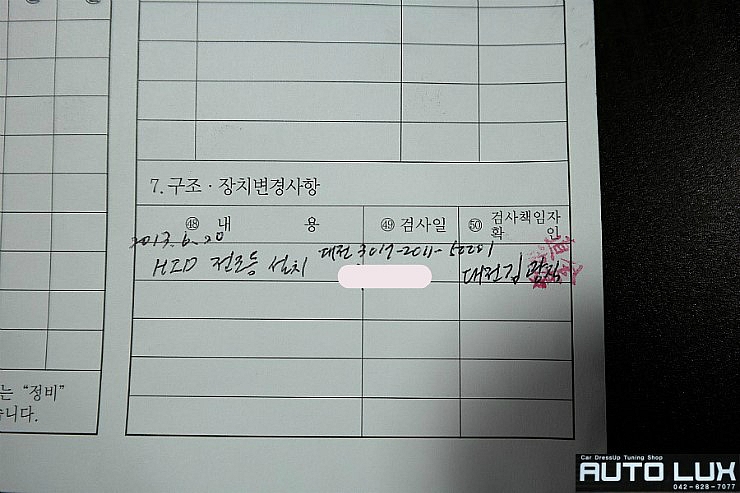 7. 구조 · 장치변경사항
㊽ 내 용
㊾ 검사일
㊿ 검사책임자 확 인
2013. 6. 20
HID 전조등 설치
대전 3019-2011-50201
대전김광식
는 “정비”
습니다.
Car DressUp Tuning Shop
AUTO LUX
042-628-7077